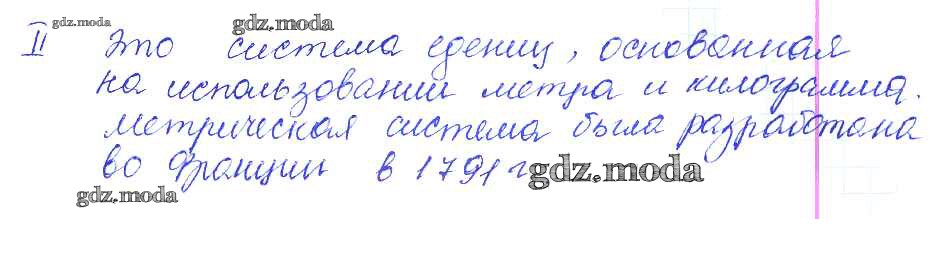 gdz.moda
gdz.moda
II Это система едениц, основанная
на использовании метра и килограмма.
Метрическая система была разработана
во Франции в 1791 г.
gdz.moda
gdz.moda